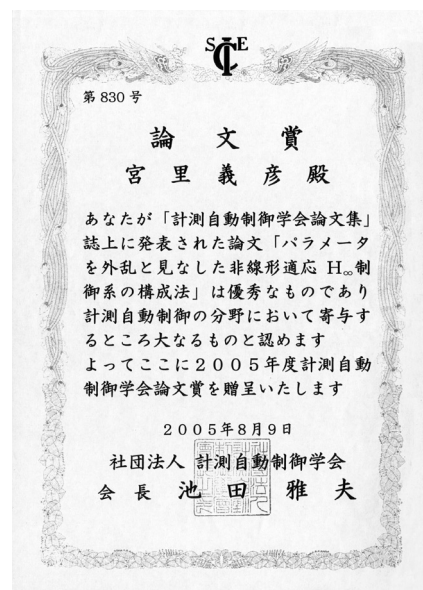 SICE
第830号
論文賞
宮里義彦殿
あなたが「計測自動制御学会論文集」
誌上に発表された論文「パラメータ
を外乱と見なした非線形適応 H∞制
御系の構成法」は優秀なものであり
計測自動制御の分野において寄与す
るところ大なるものと認めます
よってここに2005年度計測自動
制御学会論文賞を贈呈いたします
2005年8月9日
社団法人 計測自動制御学会
会長 池田雅夫